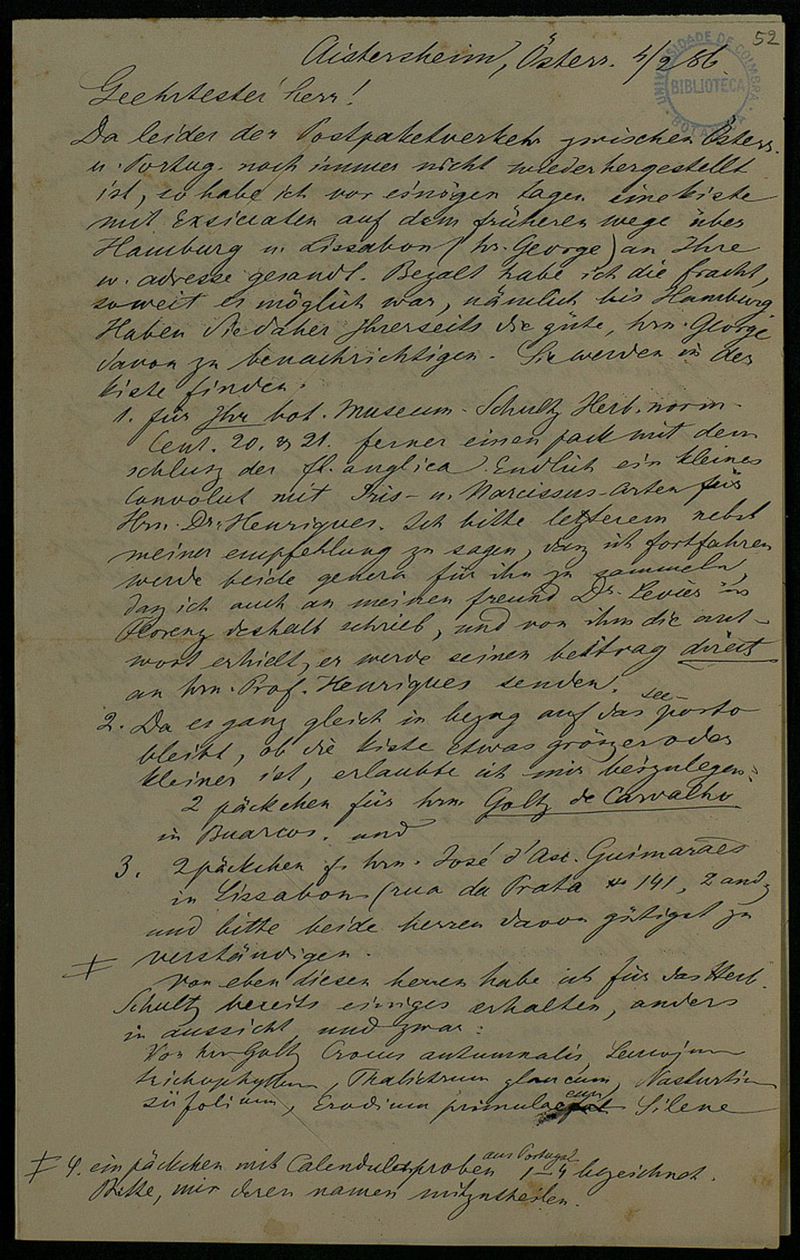 52
UNIVERSIDADE DE COIMBRA
BIBLIOTECA
BOTANICA
Aistersheim, Österr. 4/2 86.
Geehrtester herr!
Da leider der Postpaketverkehr zwischen Österr.
u. Portug. noch immer nicht wiederhergestellt
ist, so habe ich vor einigen tagen eine kiste
mit Exsiccaten auf dem früheren wege über
Hamburg u. Lissabon (hr. George) an Ihre
w. adresse gesandt. Bezalt habe ich die fracht,
soweit es möglich war, nämlich bis Hamburg
Haben Sie daher Ihrerseits die güte, hrn. George
davon zu benachrichtigen. Sie werden in der
kiste finden:
1. für Ihr bot. Museum. Schultz Herb. norm.
Cent. 20. & 21. ferner einen pack mit dem
schlusz der fl. anglica. Endlich ein kleines
Convolut mit Iris- u. Narcissus-arten für
Hrn. Dr. Henriques. Ich bitte letzterem nebst
meiner empfehlung zu sagen, dasz ich fortfahren
werde beide genera für ihn zu sammeln,
dasz ich auch an meinen freund Dr. Levier in
Florenz deshalb schrieb, und von ihm die ant-
wort erhielt, er werde seinen beitrag direct
an hrn. Prof. Henriques senden.
2. Da es ganz gleich in bezug auf das see-porto
bleibt, ob die kiste etwas gröszer oder
kleiner ist, erlaubte ich mir beizulegen:
2 päckchen für hrn Goltz de Carvalho
in Buarcos. und
3. 2 päckchen f. hrn. José d'Asc. Guimarães
in Lissabon (rua da Prata № 141, 2 and.
und bitte beide herren davon gütigst zu
verständigen.
Von eben diesen herren habe ich für das Herb.
Schultz bereits einiges erhalten, anders
in aussicht, und zwar:
Von hrn Goltz Crocus autumnalis, Leucojum
trichophyllum, Thalictrum glaucum, Nasturtium
siifolium, Erodium primulaceum Silene
‡ 4. ein päckchen mit Calendulaproben aus Portugal 1–4 bezeichnet.
Bitte, mir deren namen mitzutheilen.